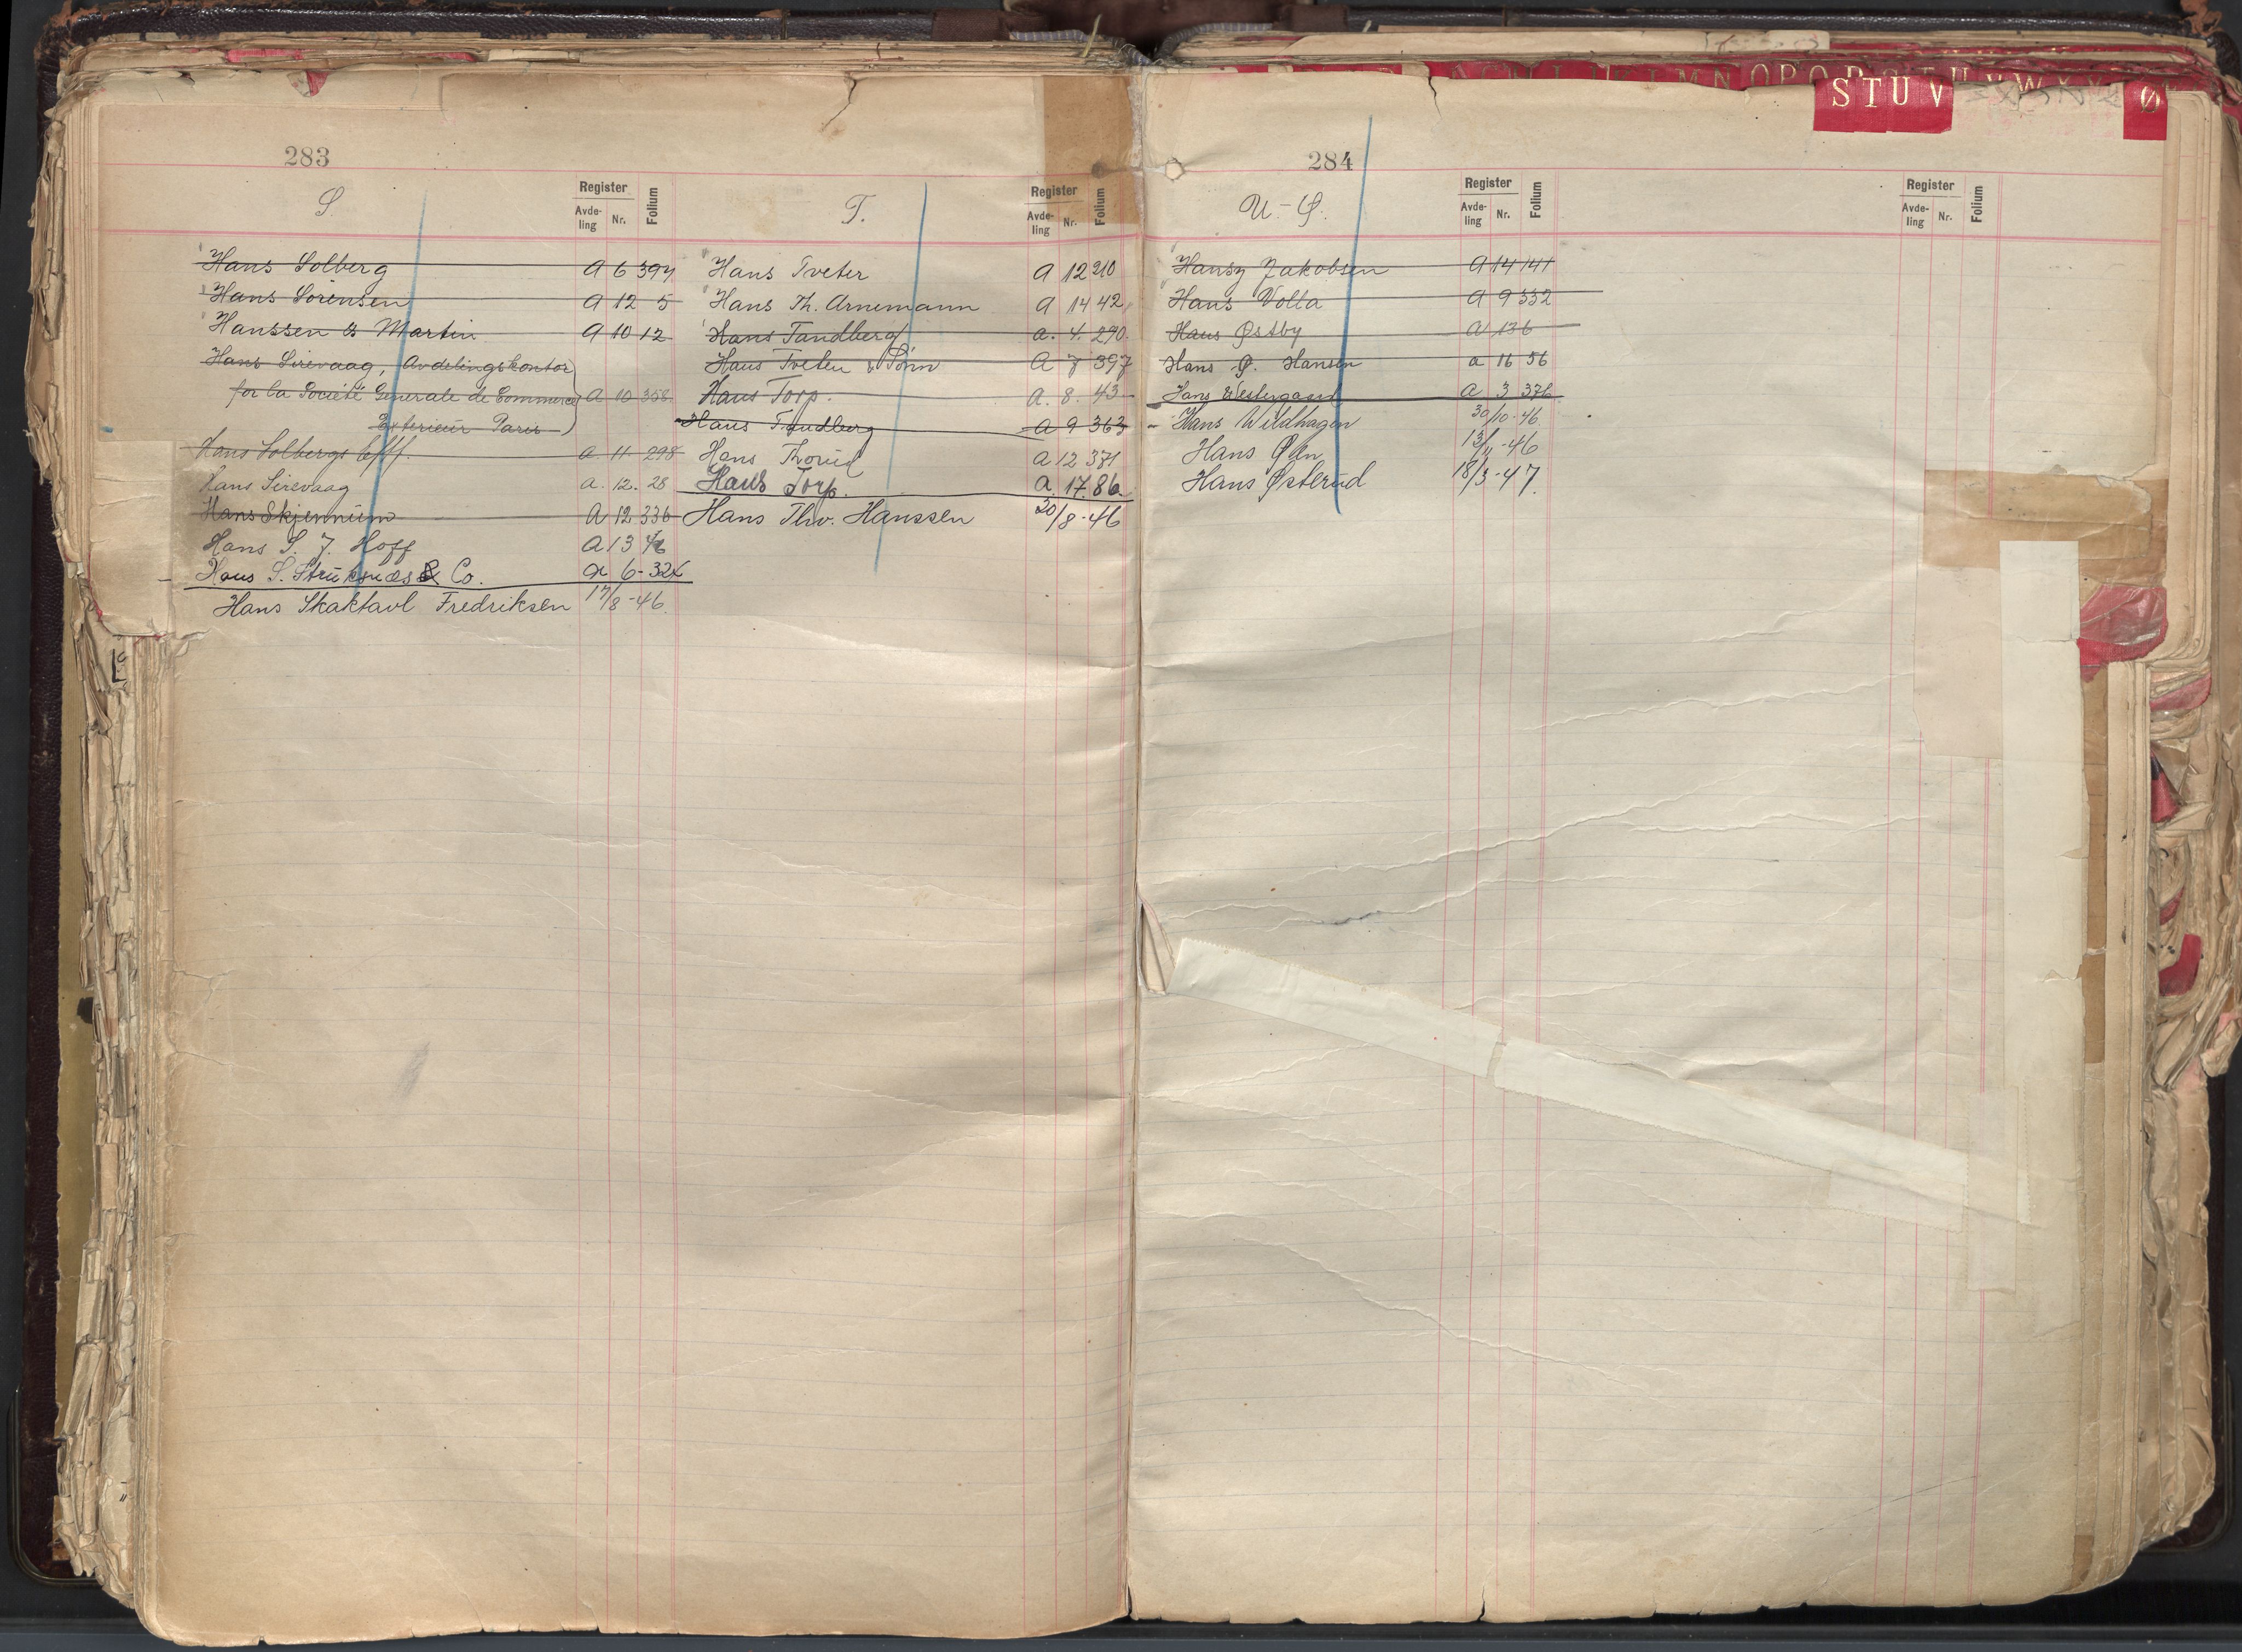 STUV Ø
283
S.
Register
Avde-
ling
Nr.
Folium
Hans Solberg A 6 394
Hans Sørensen A 12 5
Hanssen & Martin A 10 12
Hans Sirevaag, Avdelingskontor
for la Société Generale de Commerce A 10 358
Exterieur Paris
Hans Solbergs Eftf. a. 11 298
Hans Sirevaag a. 12. 28
Hans Skjennum A 12 336
Hans S. J. Hoff A 13
Hans S. Struksnæs & Co. a 6-324
Hans Skaktavl Fredriksen 17/8-46.
T.
Register
Avde-
ling
Nr.
Folium
Hans Tveter A 12 210
Hans Th. Arnemann A 14 42
Hans Tandberg a. 4. 290.
Hans Tveten & Sønn A 7 397
Hans Torp. A. 8. 43
Hans Tandberg A 9 363
Hans Thorud A 12 371
Hans Torp. A. 17. 86
Hans Thv. Hanssen 20/8-46
284
U.-Ø.
Register
Avde-
ling
Nr.
Folium
Hansy Jakobsen A 14 141
Hans Volla A 9 332
Hans Østby A 136
Hans Ø. Hansen a 16 56
Hans Westergaard a 3 376
Hans Wildhagen 30/10-46.
Hans 13/11-46
Hans Østerud 18/3-47.
Register
Avde-
ling
Nr.
Folium